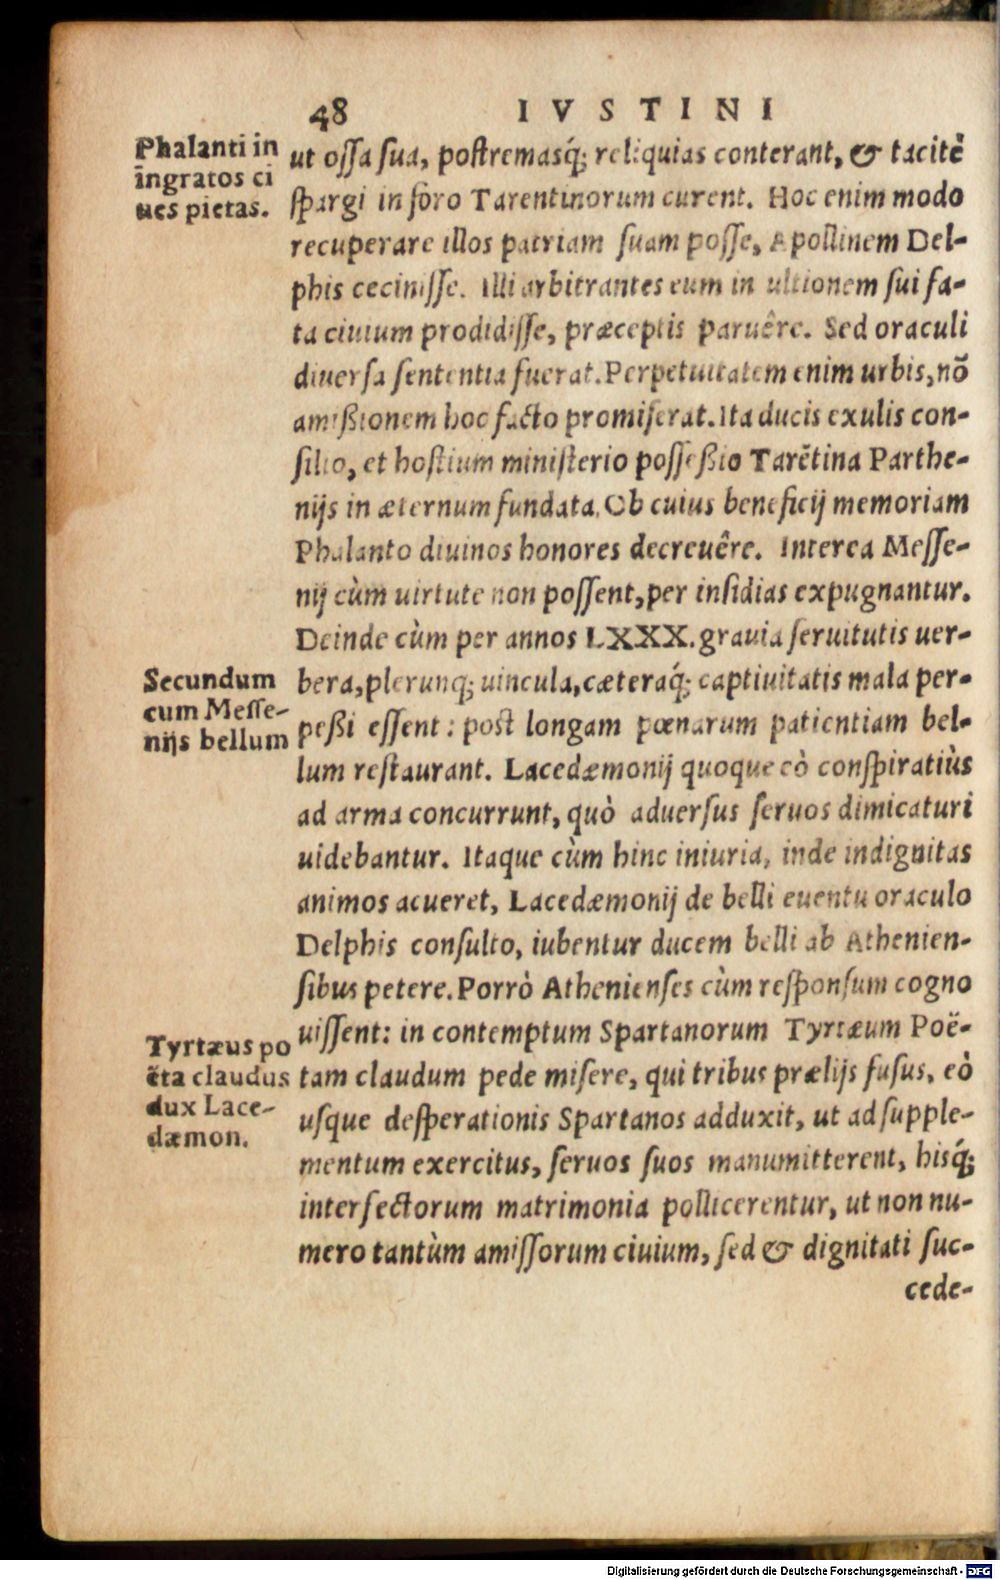 48 IVSTINI
Phalanti in
ingratos ci
ues pietas.
ut ossa sua, postremasq́; reliquias conterant, & tacitè
spargi in foro Tarentinorum curent. Hoc enim modo
recuperare illos patriam suam posse, Apollinem Del-
phis cecinisse. Illi arbitrantes eum in ultionem sui fa-
ta ciuium prodidisse, præceptis paruêre. Sed oraculi
diuersa sententia fuerat. Perpetuitatem enim urbis, nō
amißionem hoc facto promiserat. Ita ducis exulis con-
silio, et hostium ministerio posseßio Tarētina Parthe-
nijs in æternum fundata. Ob cuius beneficij memoriam
Phalanto diuinos honores decreuêre. Interea Messe-
nij cùm uirtute non possent, per insidias expugnantur.
Deinde cùm per annos LXXX. grauia seruitutis uer-
Secundum
cum Messe-
nijs bellum
bera, plerunq; uincula, cæteraq́; captiuitatis mala per-
peßi essent: post longam pœnarum patientiam bel-
lum restaurant. Lacedæmonij quoque eò conspiratiùs
ad arma concurrunt, quò aduersus seruos dimicaturi
uidebantur. Itaque cùm hinc iniuria, inde indignitas
animos acueret, Lacedæmonij de belli euentu oraculo
Delphis consulto, iubentur ducem belli ab Athenien-
sibus petere. Porrò Athenienses cùm responsum cogno
Tyrtæus po
ëta claudus
dux Lace-
dæmon.
uissent: in contemptum Spartanorum Tyrtæum Poë-
tam claudum pede misere, qui tribus prælijs fusus, eò
usque desperationis Spartanos adduxit, ut ad supple-
mentum exercitus, seruos suos manumitterent, hisq́;
intersectorum matrimonia pollicerentur, ut non nu-
mero tantùm amissorum ciuium, sed & dignitati suc-
cede-
Digitalisierung gefördert durch die Deutsche Forschungsgemeinschaft - DFG